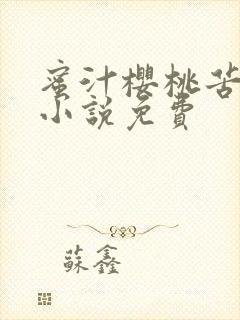 蜜汁櫻桃苦
小說免費
蘇鑫